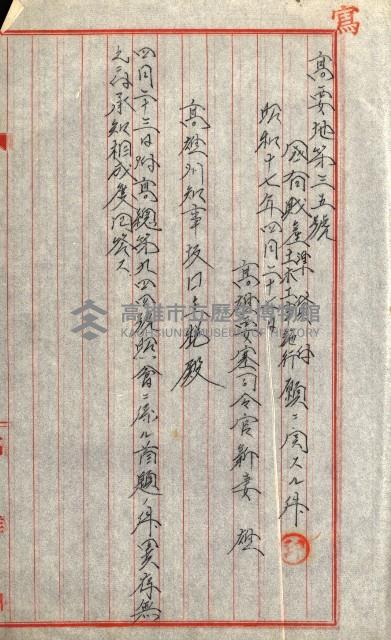 寫
高要地第三五號
國有財產
土木工事施行願ニ関スル件
昭和十七年四月二十
高雄要塞司令官新妻 雄
高雄州知事坂口主税殿
四月二十三日附高總第九四四號照會ニ係ル首題ノ件異存無
之ニ付承知相成度回答ス
高雄市立歷史博物館
KAOHSIUNG MUSEUM OF HISTORY